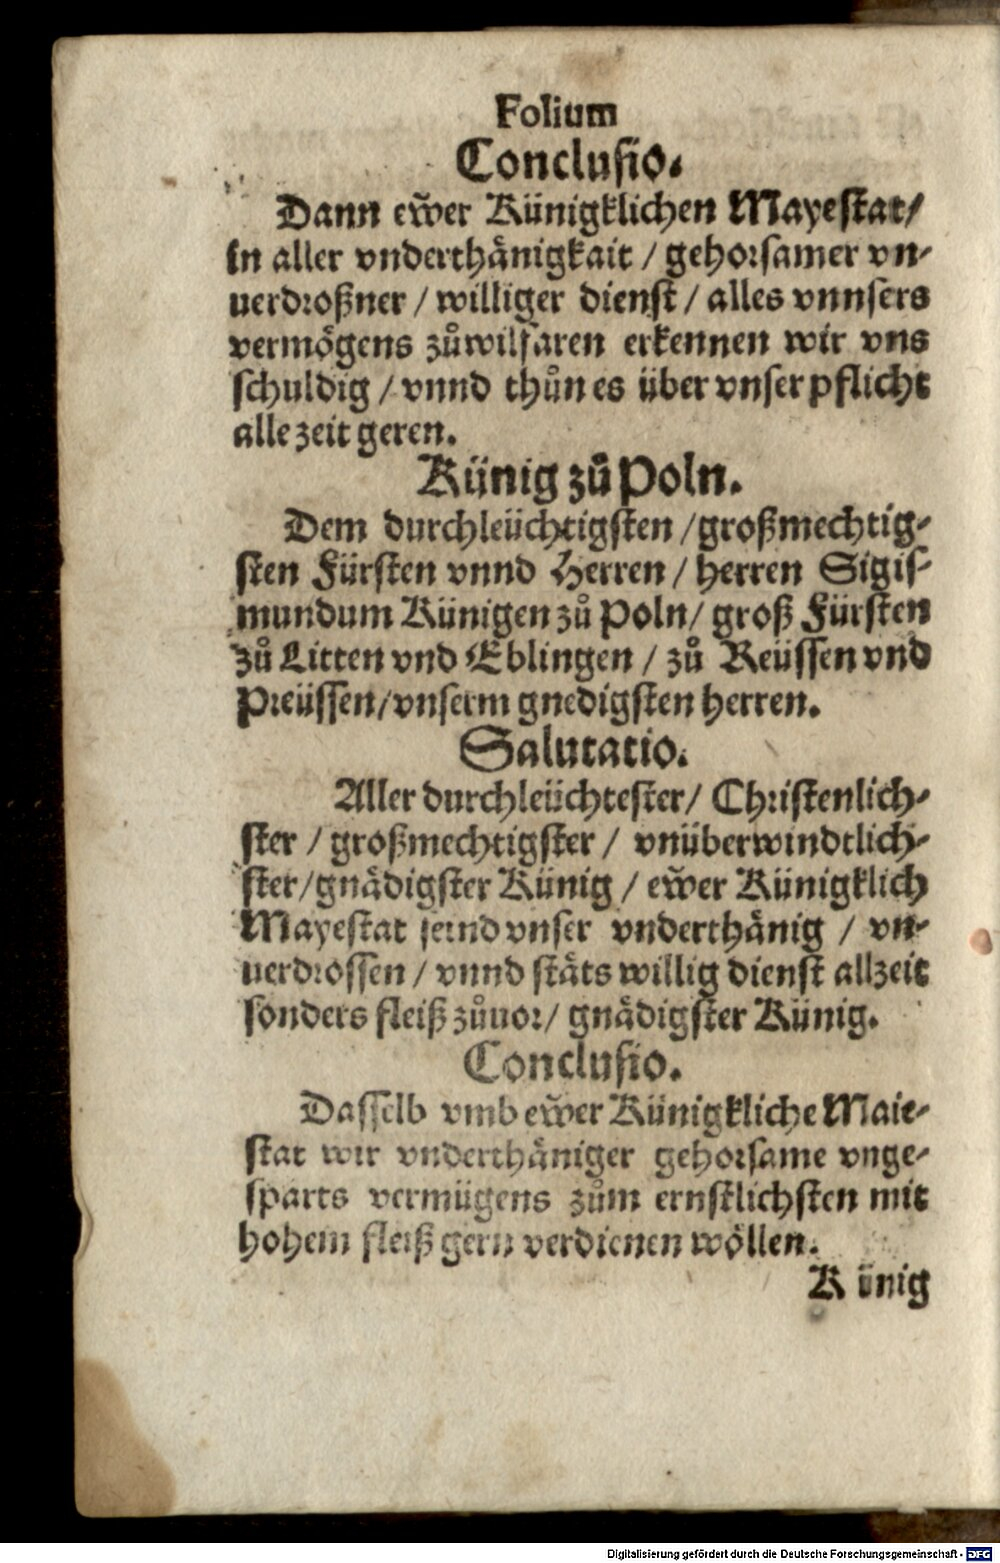 Folium
Conclusio.
Dann ew̃er Künigklichen Mayestat/
in aller vnderthänigkait / gehorsamer vn-
uerdroßner / williger dienst / alles vnnsers
vermögens zůwilfaren erkennen wir vns
schuldig / vnnd thůn es über vnser pflicht
alle zeit geren.
Künig zů Poln.
Dem durchleüchtigsten / großmechtig-
sten Fürsten vnnd Herren / herren Sigis-
mundum Künigen zů Poln / groß Fürsten
zů Litten vnd Eblingen / zů Reüssen vnd
Preüssen / vnserm gnedigsten herren.
Salutatio.
Aller durchleüchtester / Christenlich-
ster / großmechtigster / vnüberwindtlich-
ster / gnädigster Künig / ew̃er Künigklich
Mayestat seind vnser vnderthänig / vn-
uerdrossen / vnnd stäts willig dienst allzeit
sonders fleiß zůuor / gnädigster Künig.
Conclusio.
Dasselb vmb ew̃er Künigkliche Maie-
stat wir vnderthäniger gehorsame vnge-
sparts vermügens zům ernstlichsten mit
hohem fleiß gern verdienen wöllen.
Künig
Digitalisierung gefördert durch die Deutsche Forschungsgemeinschaft - DFG